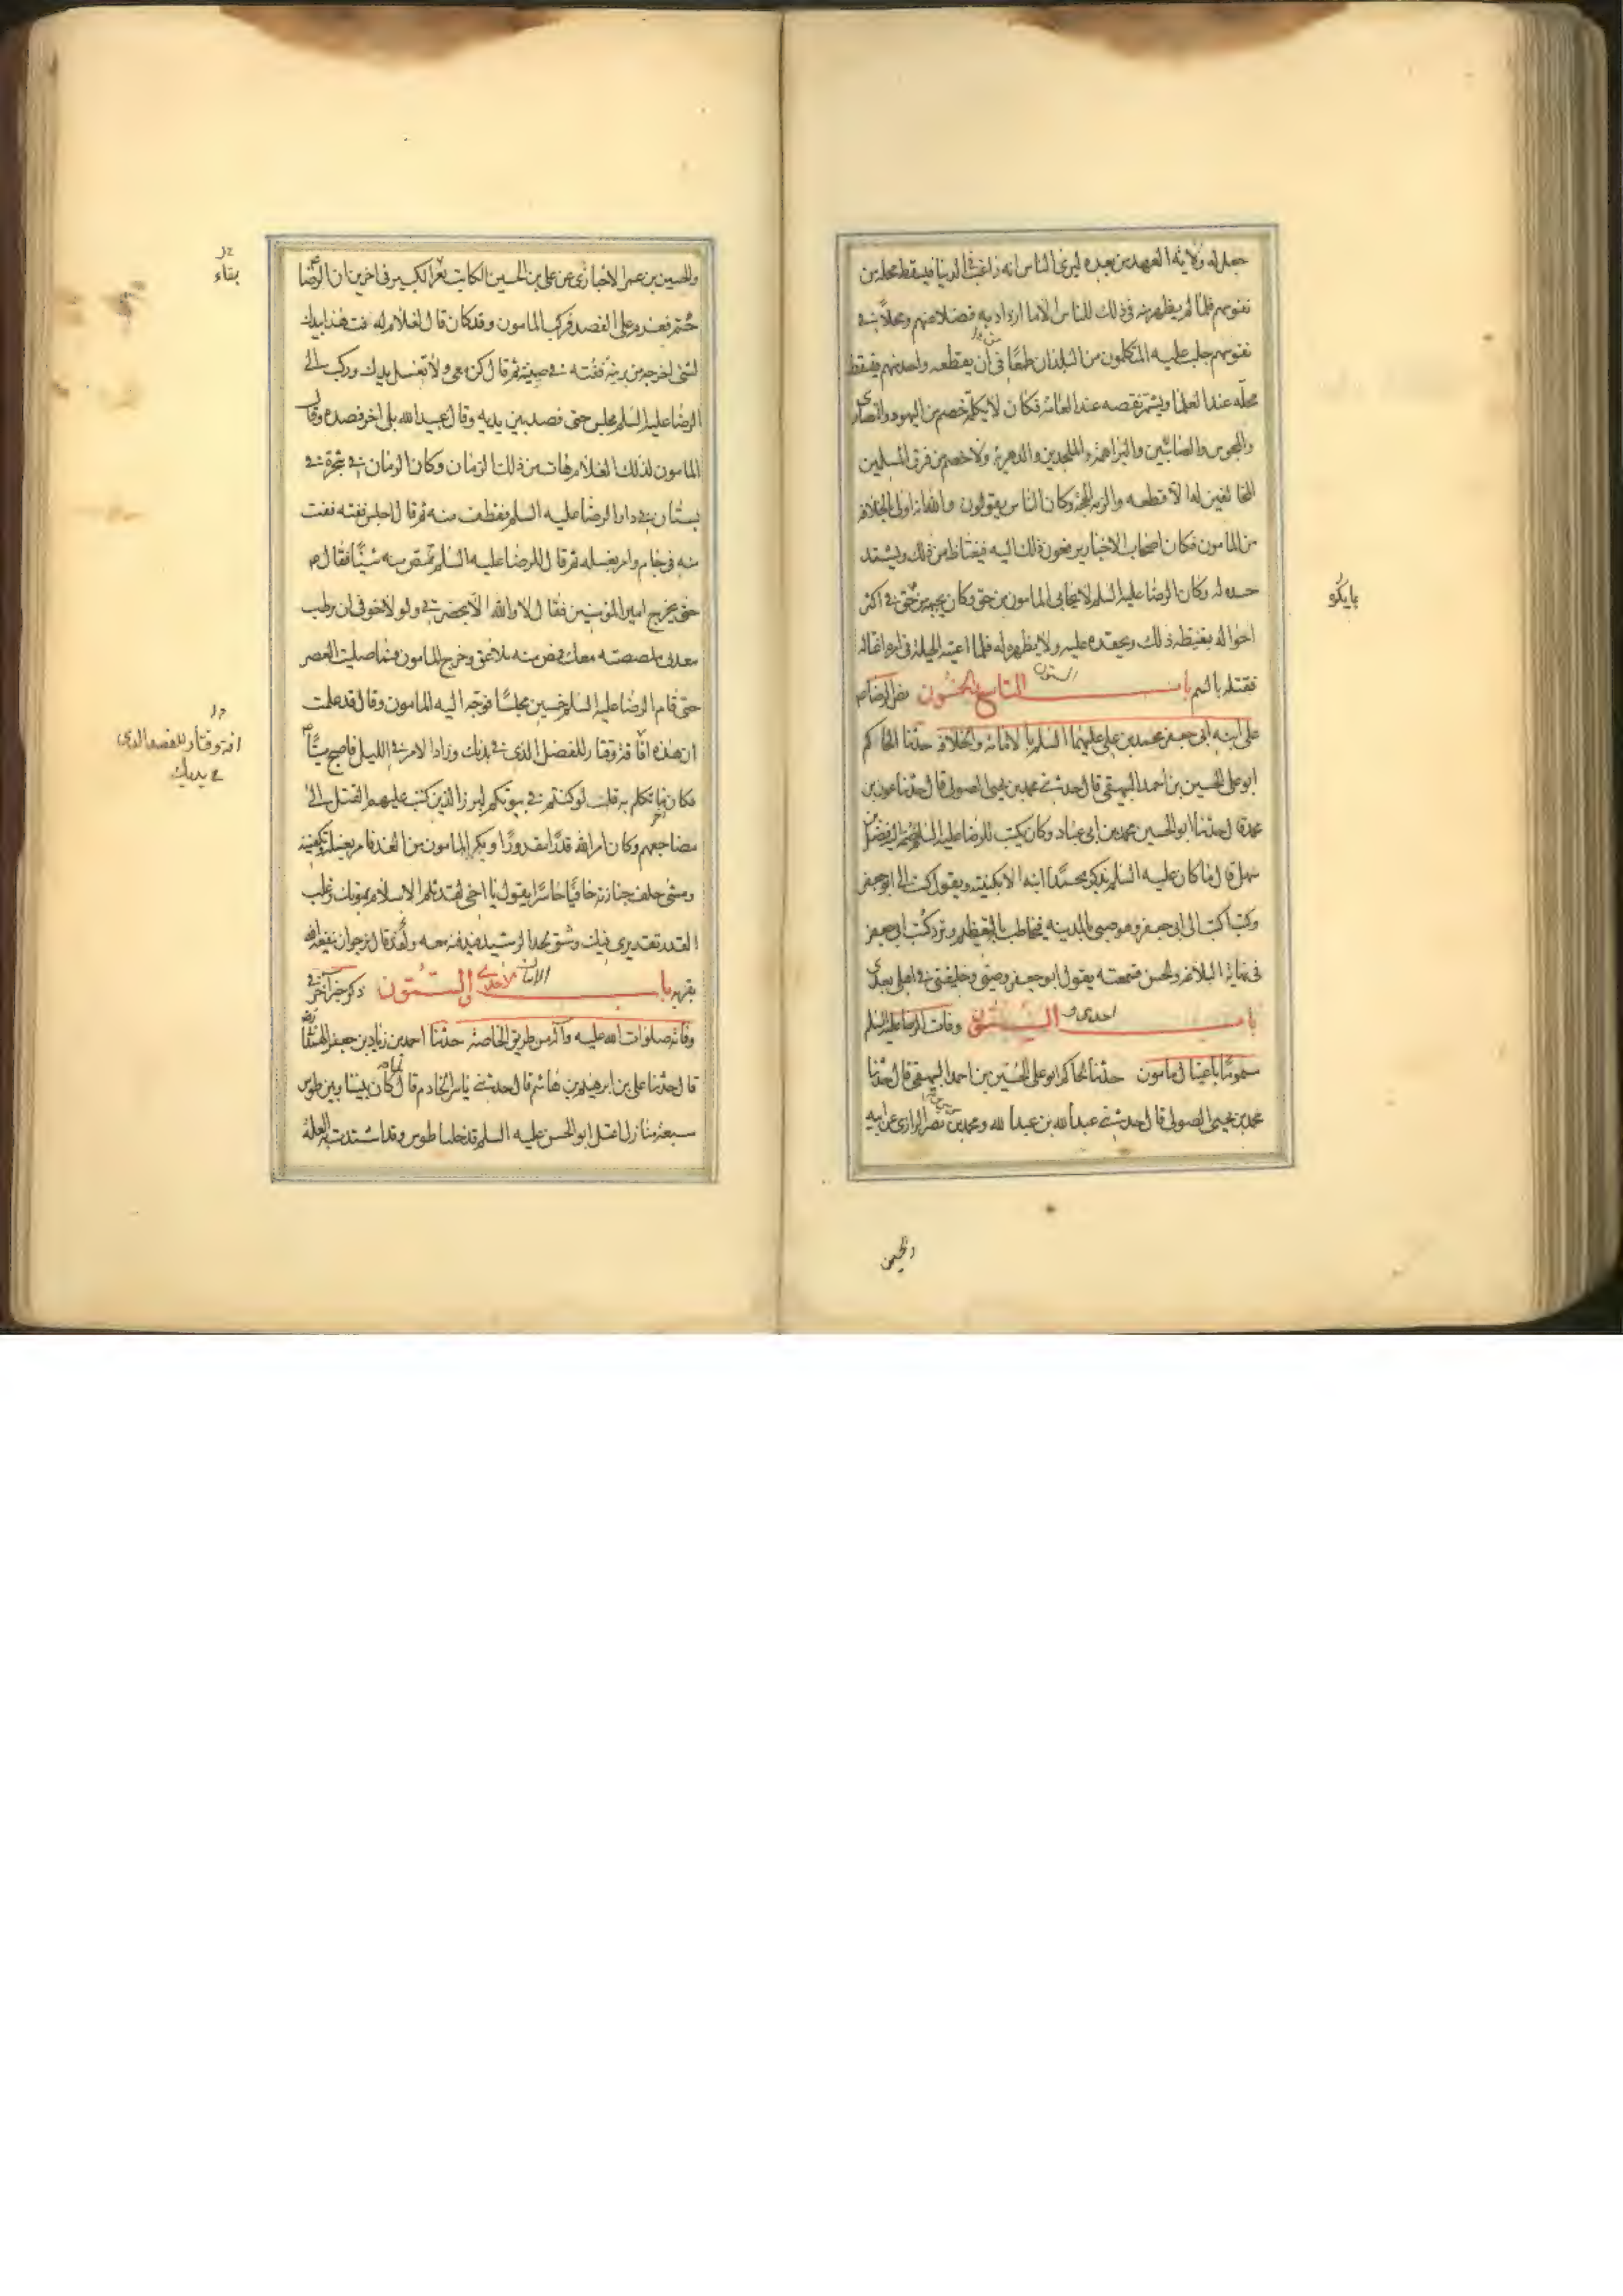 جعل له ولاية العهد من بعده ليرى الناس انه راغب في الدنيا فيسقط محله من
نفوسهم فلما لم يظهر منه في ذلك للناس الا ما ازداد به فضلا عندهم ومحلا في
نفوسهم جلب عليه المتكلمون من البلدان طمعا في أن يقطعه واحد منهم فيسقط
محله عند العلما ويشتهر نقصه عند العامة فكان لا يكلمه خصم من اليهود والنصارى
والمجوس والصابئين والبراهمة والملحدين والدهرية ولا خصم من فرق المسلمين
المخالفين له الا قطعه والزمه الحجة وكان الناس يقولون والله انه اولى بالخلافة
من المامون فكان اصحاب الاخبار يرفعون ذلك اليه فيغتاظ من ذلك ويشتد
حسده له وكان الرضا عليه السلم لا يحابي المامون من حق وكان يجيبه في اكثر
بايكره
احواله فيغيظه ذلك ويحقده عليه ولا يظهره له فلما اعيته الحيلة في امره اغتاله
فقتله بالسم باب التاسع والخمسون الستون نص الرضا
على ابنه ابي جعفر محمد بن علي عليهما السلم بالامامة والخلافة حدثنا الحاكم
ابو علي الحسين بن احمد البيهقي قال حدثني محمد بن يحيى الصولي قال حدثنا عون بن
محمد قال حدثنا ابو الحسين محمد بن ابي عباد وكان يكتب للرضا عليه السلم ضمه اليه الفضل بن
سهل قال ما كان عليه السلم يذكر محمدا ابنه الا بكنيته ويقول كتب الي ابو جعفر
وكنت اكتب الى ابي جعفر وهو صبي بالمدينة فيخاطبه بالتعظيم وترد كتب ابي جعفر
في نهاية البلاغة والحسن فسمعته يقول ابو جعفر وصيي وخليفتي في اهلي بعدي
باب احدى و الستون وفات الرضا عليه السلم
مسموما باغتيال مامون حدثنا الحاكم ابو علي الحسين بن احمد البيهقي قال حدثنا
محمد بن يحيى الصولي قال حدثني عبد الله بن عبد الله ومحمد بن نصر الرازي عن ابيه
والحسين
والحسين بن عمر الاخباري عن علي بن الحسين الكاتب بقرا الكبير في اخرين ان الرضا
بقاء
حم فعزم على الفصد فركب المامون وقد كان قال لغلام له فت هذا بيدك
لشئ اخرجه من برنية ففته في صينية ثم قال كن معي ولا تغسل يدك وركب الى
الرضا عليه السلم فجلس حتى فصد بين يديه وقال عبيد الله بل اخر فصده وقال
المامون لذلك الغلام هات من ذلك الرمان وكان الرمان في شجرة في
بستان في دار الرضا عليه السلم فقطف منه ثم قال اجلس ففته ففت
منه في جام وامر بغسله ثم قال للرضا عليه السلم مص منه شيئا فقال
حتى يخرج امير المؤمنين فقال لا والله الا بحضرتي ولولا خوفي ان يرطب
معدتي لمصصته معك فمص منه ملاعق وخرج المامون فما صليت العصر
حتى قام الرضا عليه السلم خمسين مجلسا فوجه اليه المامون وقال قد علمت
ان هذه افاقة وفتار للفضل الذي في بدنك وزاد الامر في الليل فاصبح ميتا
افة وفتار للفصد الذي
في يديك
فكان اخر ما تكلم به قل لو كنتم في بيوتكم لبرز الذين كتب عليهم القتل الى
مضاجعهم وكان امر الله قدرا مقدورا وبكر المامون من الغد فامر بغسله وتكفينه
ومشى خلف جنازته حافيا حاسرا يقول يا اخي لقد ثلم الاسلام بموتك وغلب
القدر تقديري فيك وشق لحد الرشيد فدفنه معه وقال نرجو ان ينفعه الله
بقربه باب الستون ذكر خبر آخر في
وفاته صلوات الله عليه وآله من طريق الخاصة حدثنا احمد بن زياد بن جعفر الهمداني
قال حدثنا علي بن ابرهيم بن هاشم قال حدثني ياسر الخادم قال لما كان بيننا وبين طوس
سبعة منازل اعتل ابو الحسن عليه السلم فدخلنا طوس وقد اشتدت به العلة